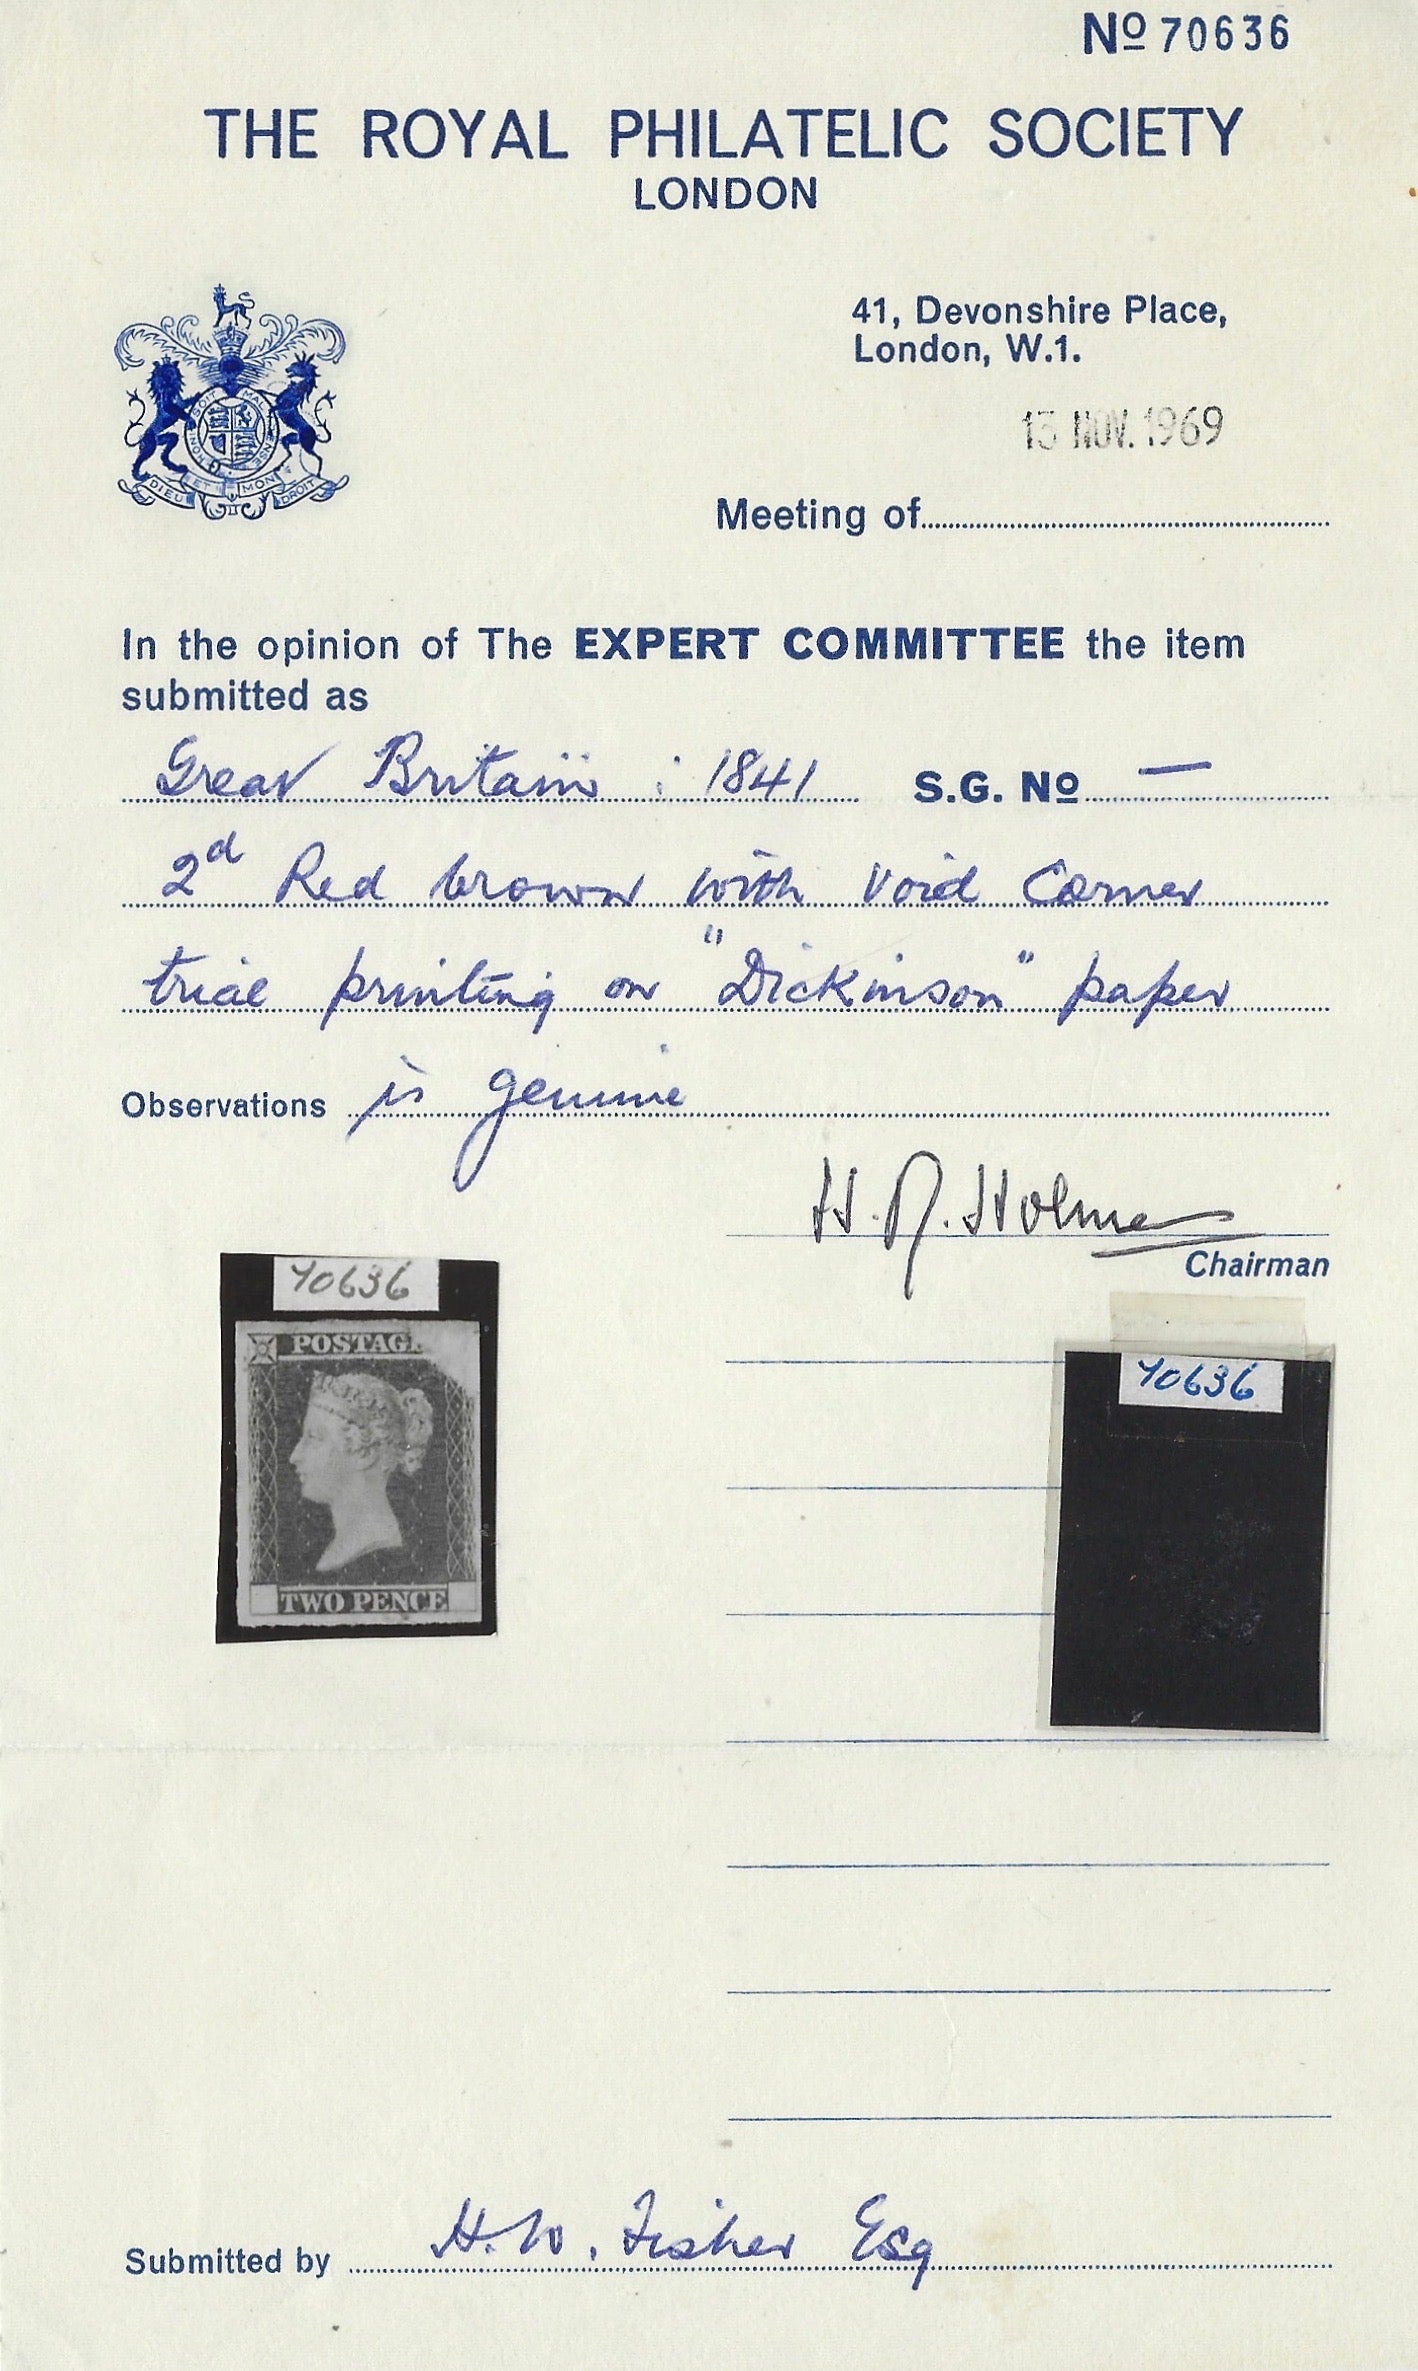 Nº 70636
THE ROYAL PHILATELIC SOCIETY
LONDON
41, Devonshire Place,
London, W.1.
13 NOV. 1969
Meeting of
HONI SOIT MAL PENSE
DIEU ET MON DROIT
In the opinion of The EXPERT COMMITTEE the item
submitted as
Great Britain : 1841 S.G. Nº —
2d Red brown with void corner
trial printing on "Dickinson" paper
Observations is genuine
H. R. Holmes
Chairman
70636
POSTAGE
TWO PENCE
70636
Submitted by H. W. Fisher Esq